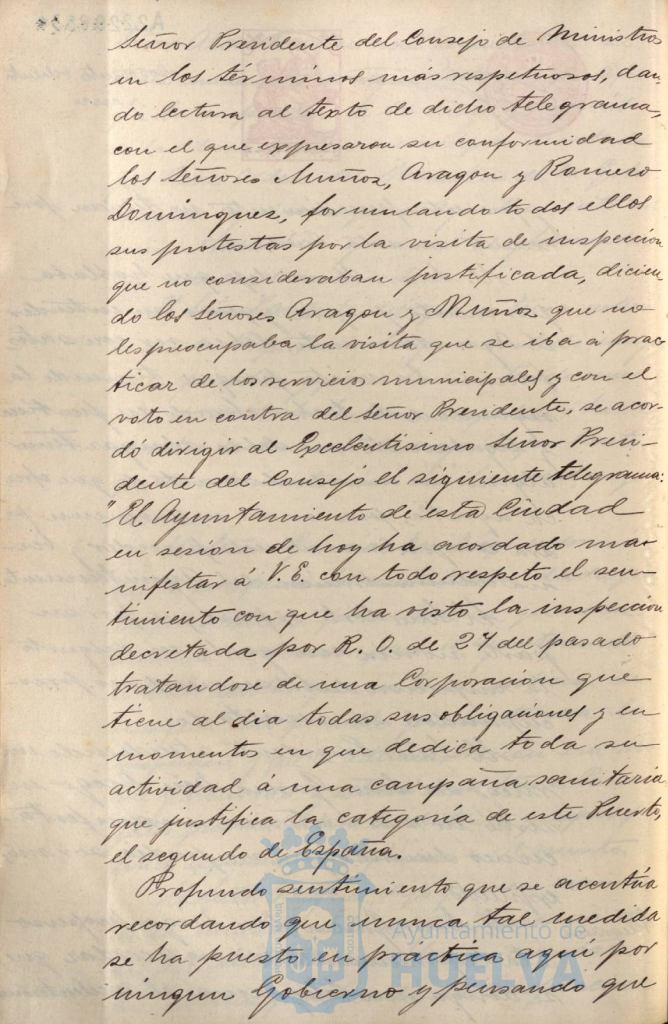 Señor Presidente del Consejo de Ministros
en los términos más respetuosos, dan-
do lectura al texto de dicho telegrama,
con el que expresaron su conformidad
los Señores Muñoz, Aragon y Romero
Dominguez, formulando todos ellos
sus protestas por la visita de inspección
que no consideraban justificada, dicien-
do los Señores Aragon y Muñoz que no
les preocupaba la visita que se iba á prac-
ticar de los servicios municipales y con el
voto en contra del Señor Presidente, se acor-
dó dirigir al Excelentisimo Señor Presi-
dente del Consejo el siguiente telegrama:
"El Ayuntamiento de esta Ciudad
en sesion de hoy ha acordado ma-
nifestar á V. E. con todo respeto el sen-
timiento con que ha visto la inspección
decretada por R. O. de 27 del pasado
tratandose de una Corporación que
tiene al dia todas sus obligaciones y en
momentos en que dedica toda su
actividad á una campaña sanitaria
que justifica la categoría de este Puerto,
el segundo de España.
Profundo sentimiento que se acentúa
recordando que nunca tal medida
se ha puesto en práctica aquí por
ningun Gobierno y pensando que
Ayuntamiento de
HUELVA